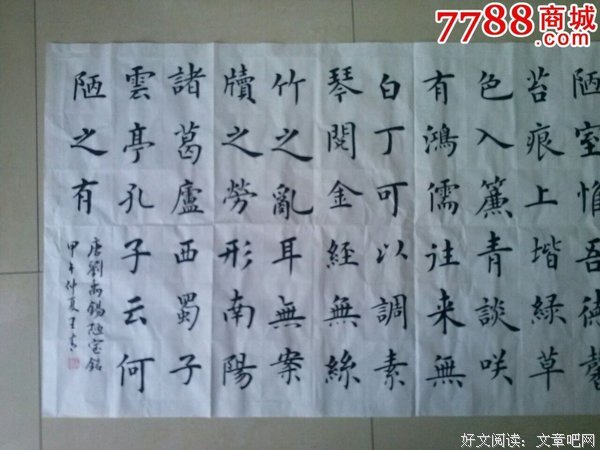 7788商城
.com
陋室惟吾德馨
苔痕上堦緑草
色入簾青談咲
有鴻儒往来無
白丁可以調素
琴閱金經無絲
竹之亂耳無案
牘之勞形南陽
諸葛廬西蜀子
雲亭孔子云何
陋之有
唐劉禹錫陋室銘
甲午仲夏王
好文阅读：文章吧网